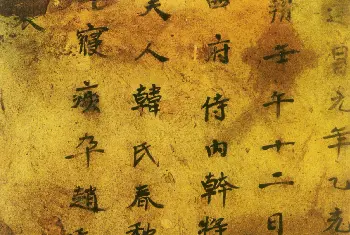 日元年乙
朔壬午十二日
府侍內幹將
夫人韓氏春秋
寢疾卒趙